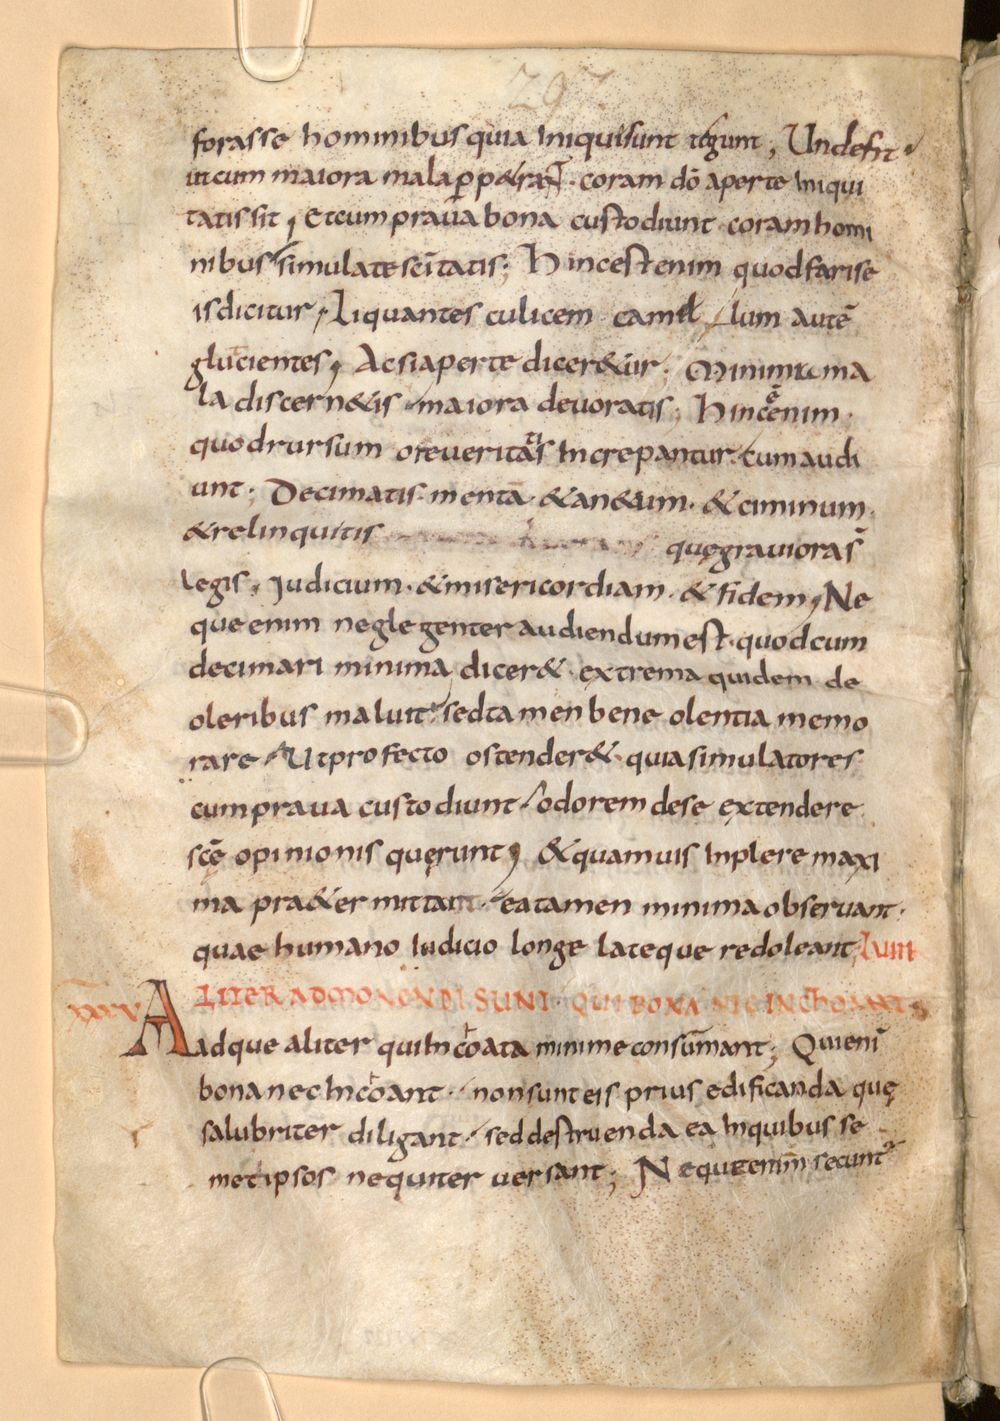 297
forasse hominibus quia iniqui sunt tegunt, Unde fit
ut cum maiora mala ꝑpetrant. coram dō aperte iniqui
tatis sit, Et cum praua bona custodiunt coram homi
nibus simulate sc̄itatis; Hinc est enim quod farise
is dicitur, Liquantes culicem camellum autē
glucientes, Ac si aperte diceretur. Minima ma
la discernetis maiora deuoratis; Hinc ē enim.
quod rursum ore ueritatis increpantur. cum audi
unt; Decimatis mentā & anetum. & ciminum.
& relinquitis quę grauiora s̄
legis, Iudicium. & misericordiam. & fidem, Ne
que enim neglegenter audiendum est. quod cum
decimari minima dicer& extrema quidem de
oleribus maluit. sed tamen bene olentia memo
rare Ut profecto ostender&. quia simulatores
cum praua custodiunt odorem de se extendere
scē opinionis quęrunt, & quamuis inplere maxi
ma pra&ermittant. ea tamen minima obseruant.
quae humano iudicio longe lateque redoleant,
XXXV ALITER ADMONENDI SUNT QUI BONA NEC INCHOANT
adque aliter qui incohata minime consūmant; Qui enī
bona nec incohant. non sunt eis prius edificanda quę
salubriter diligant. sed destruenda ea in quibus se
metipsos nequiter uersant; Neque enim secunt̄